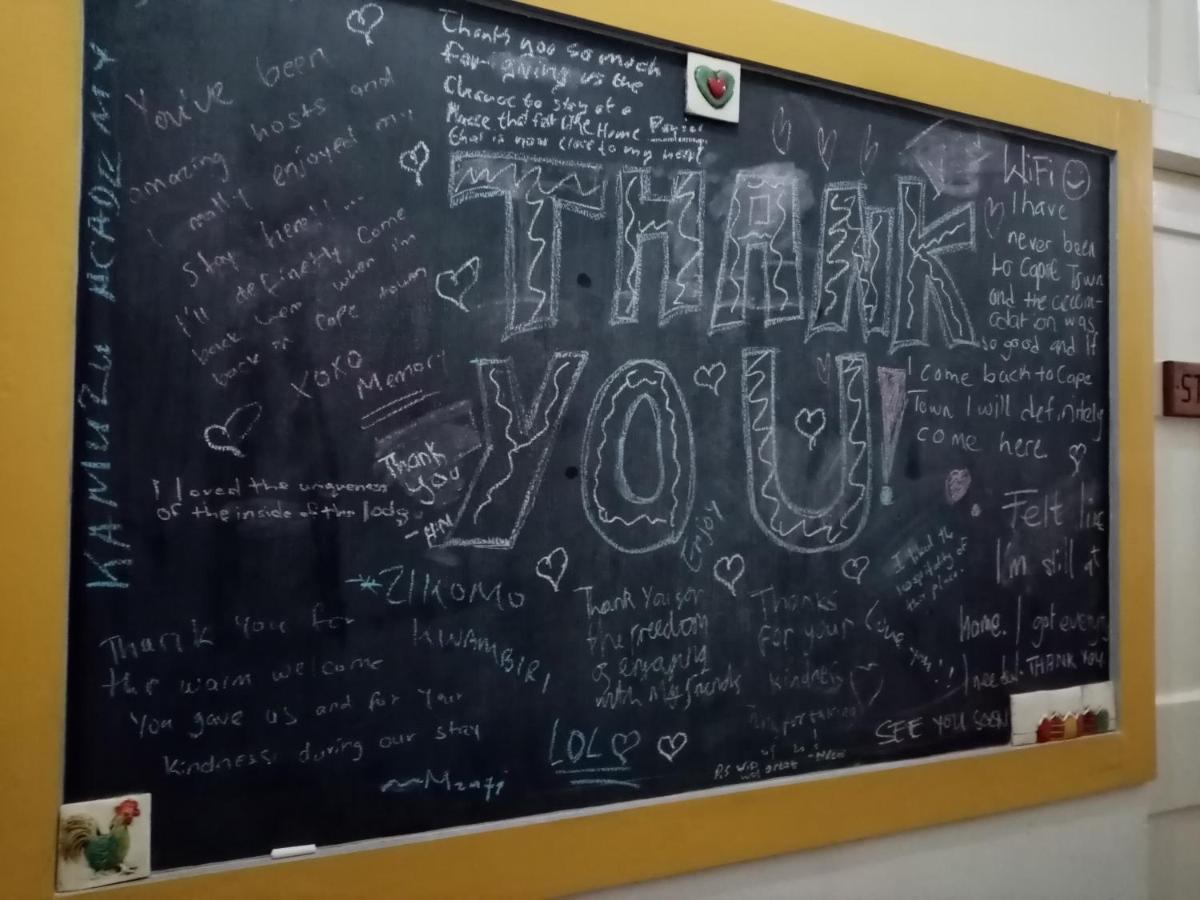 KAMUZU ACADEMY
You've been
amazing hosts and
I really enjoyed my
stay here!! ...
I'll definetly come
back were when im
back in Cape town
XOXO
Memory
Thank you so much
for giving us the
Chance to stay at a
Place that felt like Home
that is now close to my heart
THANK
YOU!
WiFi
I have
never been
to Cape Town
and the accom-
odation was
so good and if
I come back to Cape
Town I will definitely
come here.
Thank
you
-H.N
I loved the unqueness
of the inside of the lodg
Felt like
I'm still at
home. I got everyt
I needed. THANK YOU
SEE YOU SOON
Enjoy
I liked the
hospitality of
this place.
*ZIKOMO
KWAMBIRI
Thank You for
the warm welcome
You gave us and for your
kindness during our stay
~Mzati
Thank You for
the freedom
of enjoying
with my friends
LOL
Thanks
for your
kindness
Love you!!
P.S WiFi
was great
ST